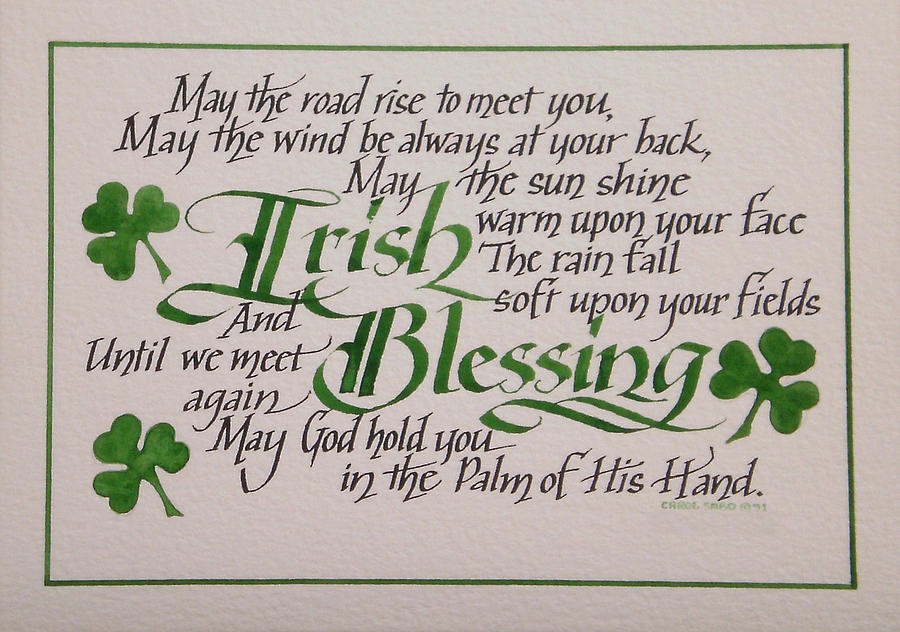 May the road rise to meet you,
May the wind be always at your back,
May the sun shine
warm upon your face
The rain fall
soft upon your fields
Irish
Blessing
And
Until we meet
again
May God hold you
in the Palm of His Hand.
CAROL SABO ©91